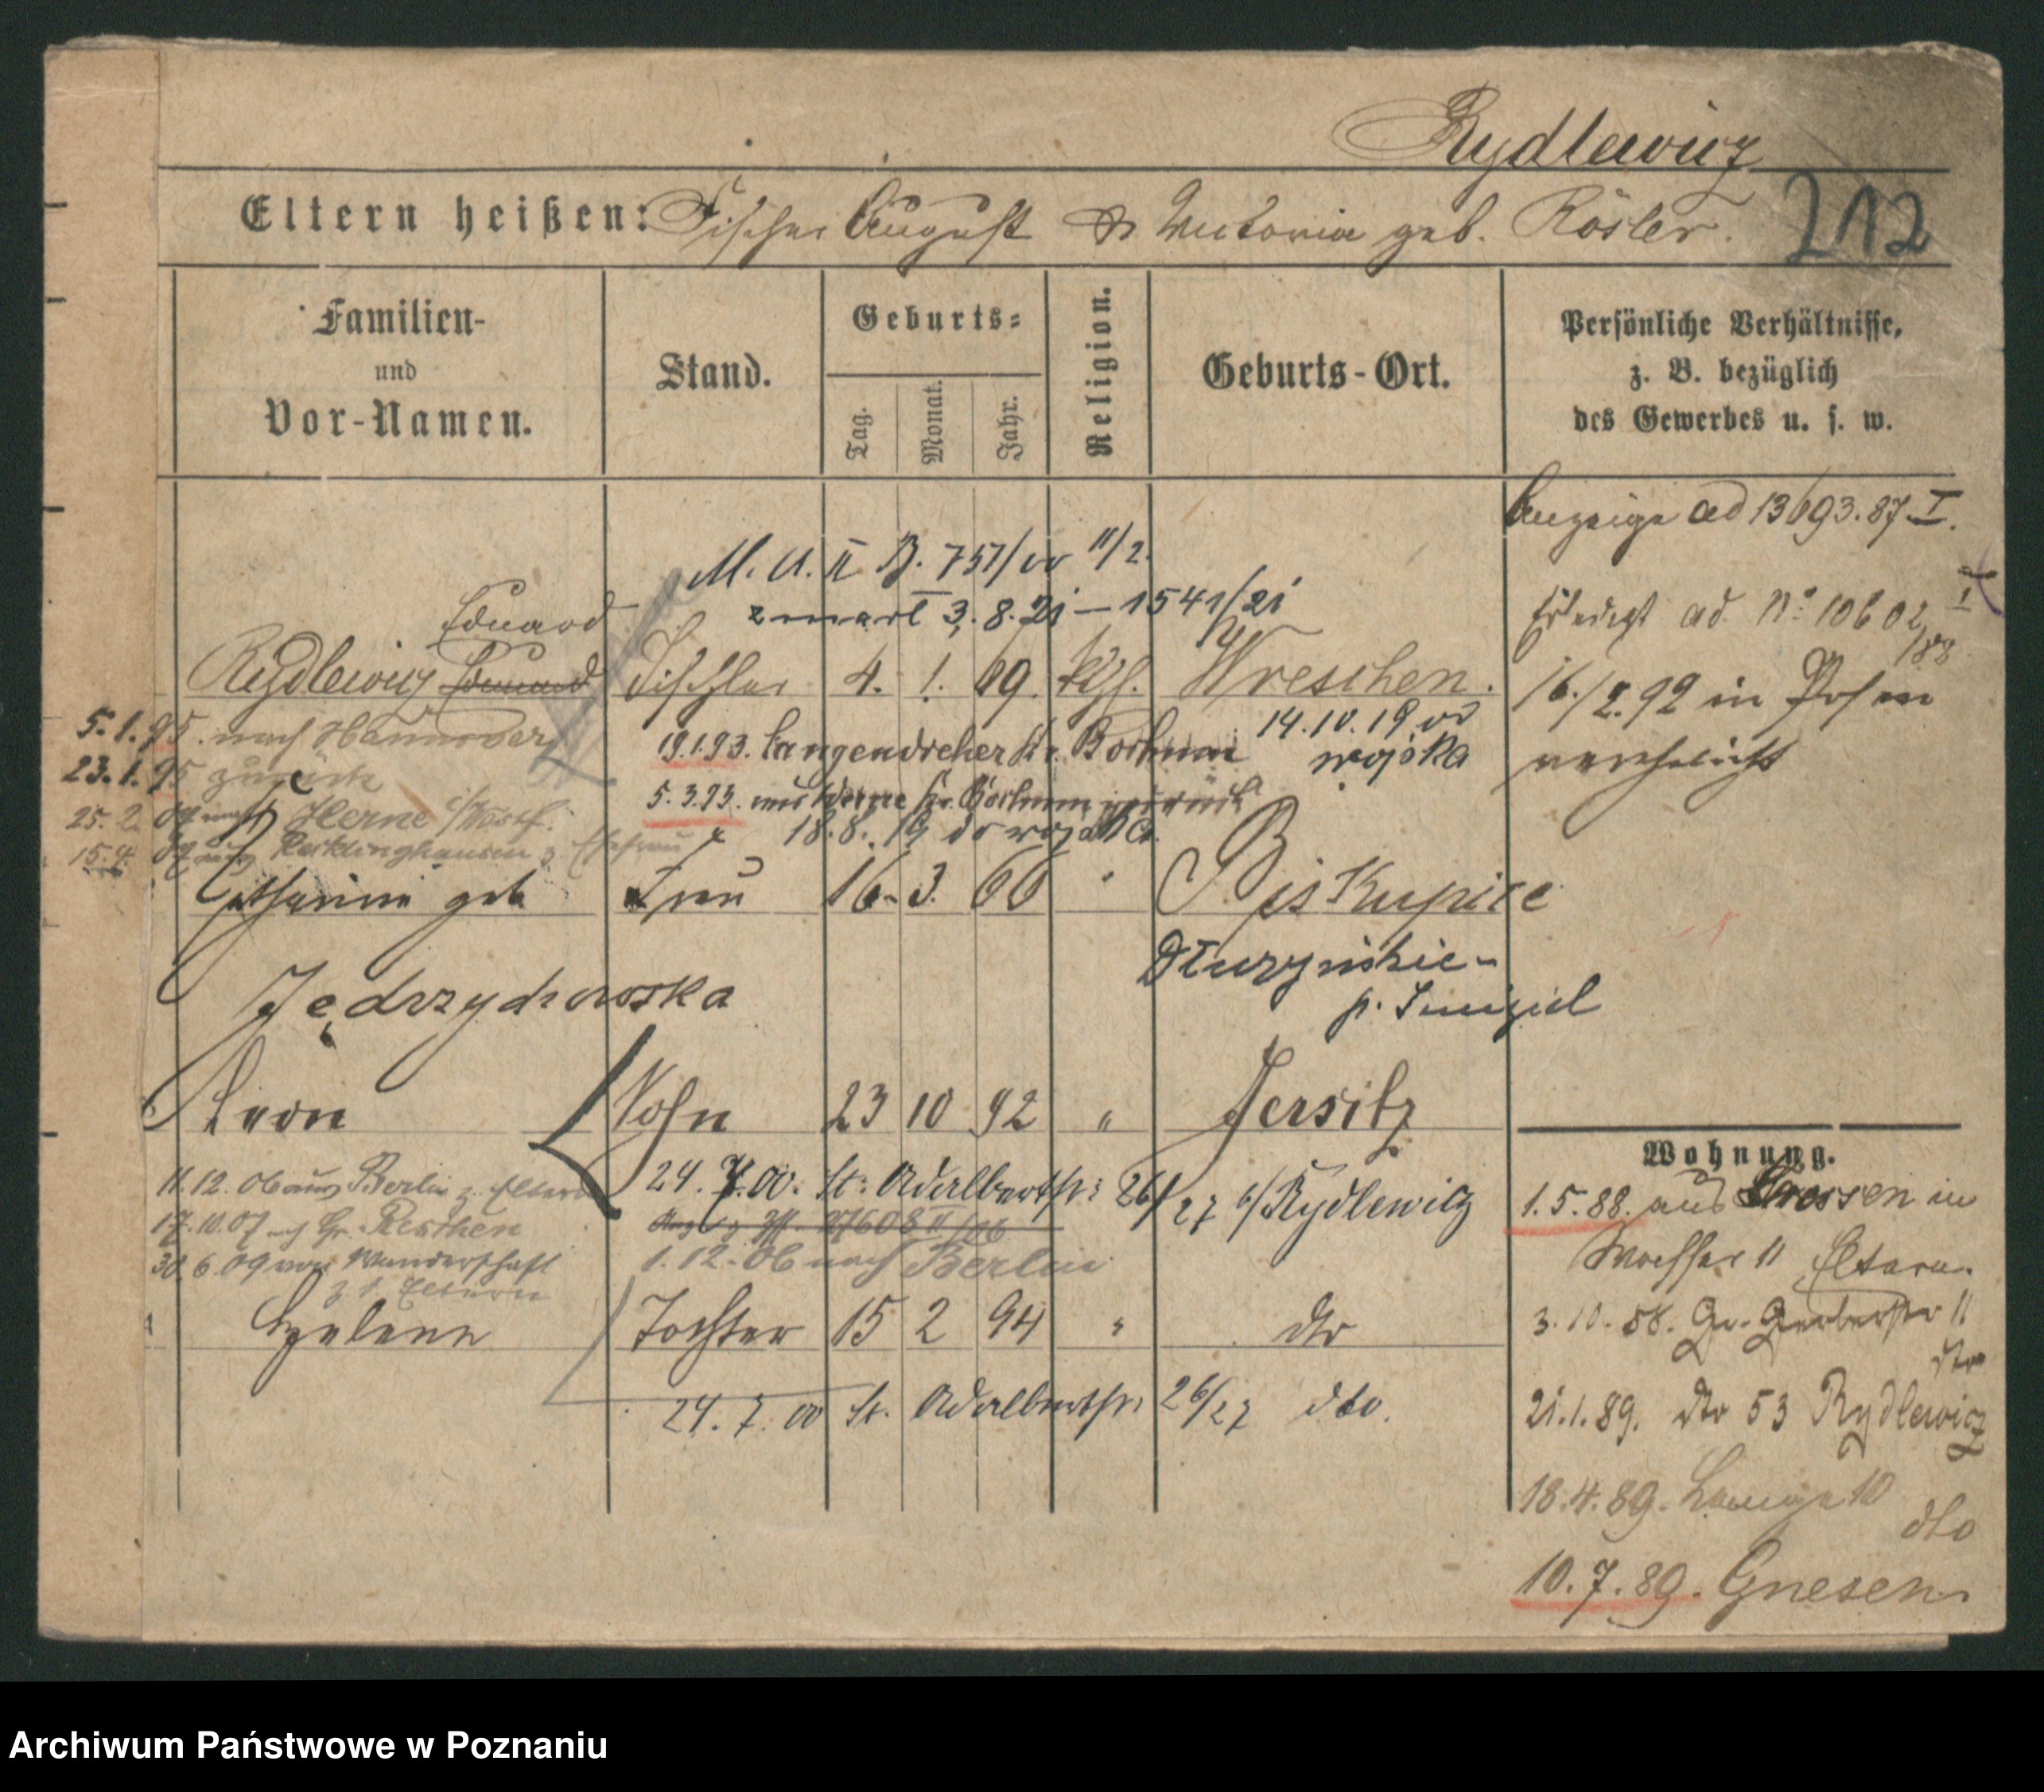 Rydlewicz
Eltern heißen: Fischer August & Victoria geb. Rösler.
212
Familien-
und
Vor-Namen.
Stand.
Geburts-
Tag.
Monat.
Jahr.
Religion.
Geburts-Ort.
Persönliche Verhältnisse,
z. B. bezüglich
des Gewerbes u. s. w.
Anzeige ad 13693.87.I.
M. U. II B. 757/00 11/2.
zmarł 3.8.21 – 1541/21
Erledigt ad. No 10602 I/88
Eduard
Rydlewicz Eduard Tischler 4. 1. 69. kth. Wreschen.
16./2.92 in Posen
verehelicht
5.1.95. nach Hannover
23.1.95 zurück
25.2.07 nach Herne i/Westf.
15.4.07 aus Recklinghausen z. Ehefrau
19.1.93. Langendreher Kr. Bochum
14.10.19 od
wojska
5.3.93. aus Werne Kr. Bochum zurück
18.8.19 do wojska.
Catharina geb Frau 16. 3. 66 " Biskupice
Jędrzychowska
Dłuzynskie -
p. Smigiel
Leon Sohn 23 10 92 " Jersitz
11.12.06 aus Berlin z. Eltern
17.10.07 nach Gr. Reethen
30.6.09 von Wanderschaft
z. Eltern
24.7.00. St: Adalbertstr: 26/27 b/Rydlewicz
27608 II/06
1.12.06 nach Berlin
Helene Tochter 15 2 94 " dto
24.7.00 St. Adalbertstr. 26/27 dto.
Wohnung.
1.5.88. aus Grossen in
11 Eltern.
3.10.88. Gr. Gerberstr 11
dto
21.1.89. dto 53 Rydlewicz
18.4.89. Lange 10
dto
10.7.89. Gnesen
Archiwum Państwowe w Poznaniu